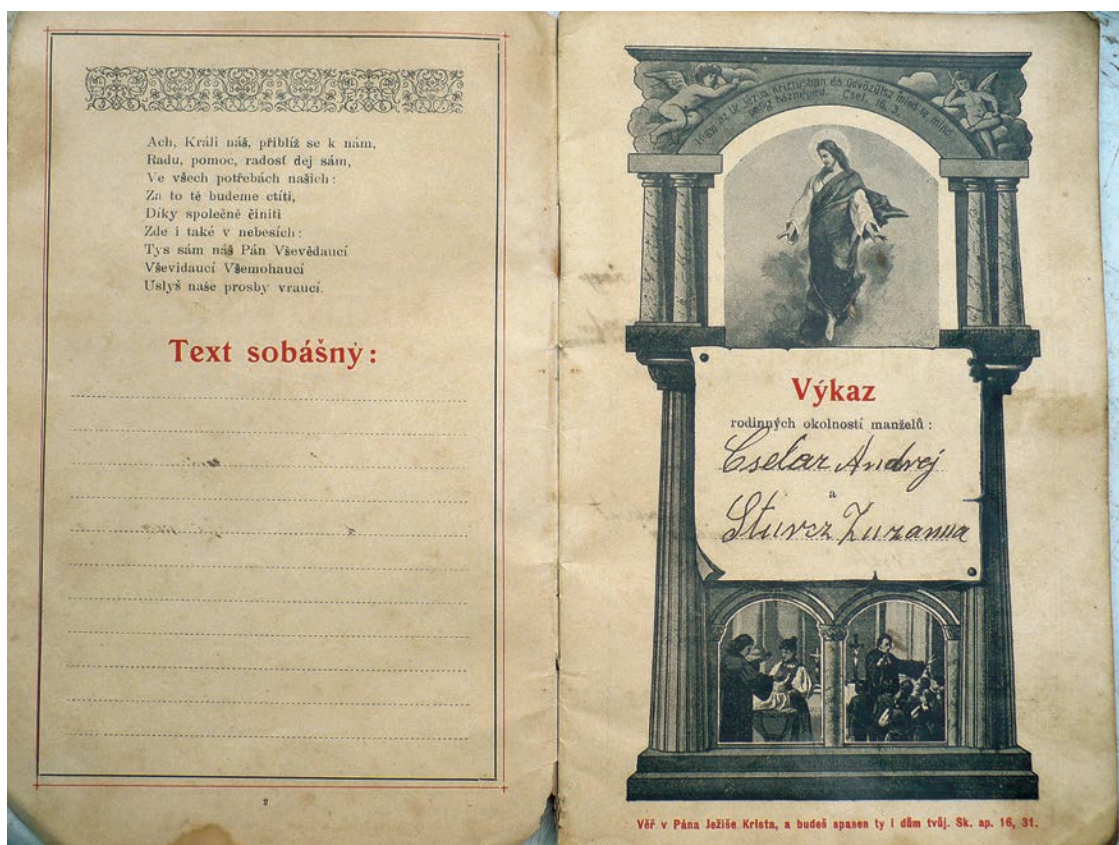 Ach, Králi náš, přibliž se k nám,
Radu, pomoc, radosť dej sám,
Ve všech potřebách našich:
Za to tě budeme ctíti,
Díky společně činiti
Zde i také v nebesích:
Tys sám náš Pán Vševědaucí
Vševidaucí Všemohaucí
Uslyš naše prosby vraucí.
Text sobášný:
2
Higyj az Úr Jézus Krisztusban és üdvözülsz mind te mind
pedig háznéped. Csel. 16. 3.
Výkaz
rodinných okolností manželů:
Cselar Andrej
a
Sturcz Zuzanna
Věř v Pána Ježíše Krista, a budeš spasen ty i dům tvůj. Sk. ap. 16, 31.